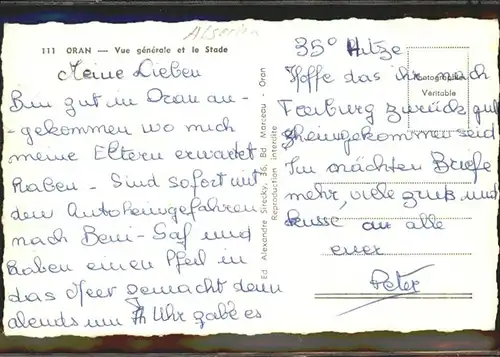 Algerien
111 ORAN — Vue générale et le Stade
Meine Lieben
Bin gut in Oran an-
-gekommen wo mich
meine Eltern erwartet
haben - Sind sofort mit
dem Auto heimgefahren
nach Beni-Saf und
haben einen Pfeil in
das Meer gemacht denn
abends um 7 Uhr gabe es
Ed. Alexandre Sirecky, 36, Bd Marceau - Oran
Reproduction interdite
Photographie
Véritable
35° Hitze
Hoffe das ihr nach
Freiburg zurück gut
heimgekommen seid
Im nächten Briefe
mehr, viele gruß und
kusse an alle
euer
Peter